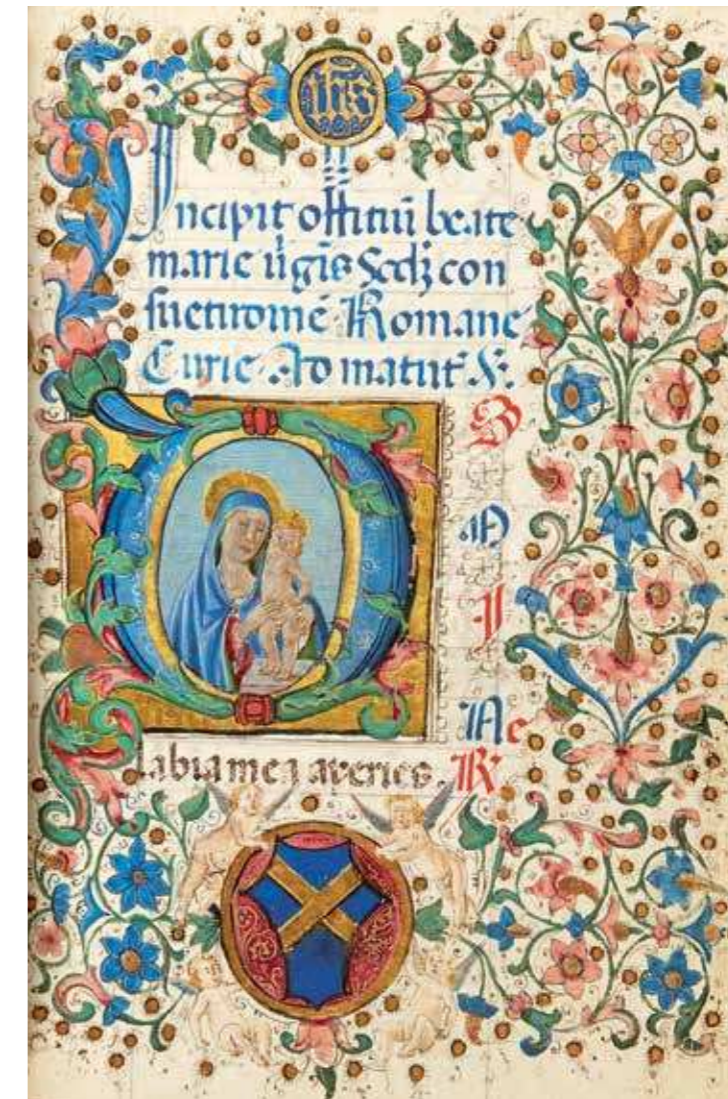 yhs
Incipit offitiū beate
marie v̄gīs Scdʒ con
suetudinē Romane
Curie. Ad matut̄. ℣.
D
N
I
Ne
labia mea aperies. ℟